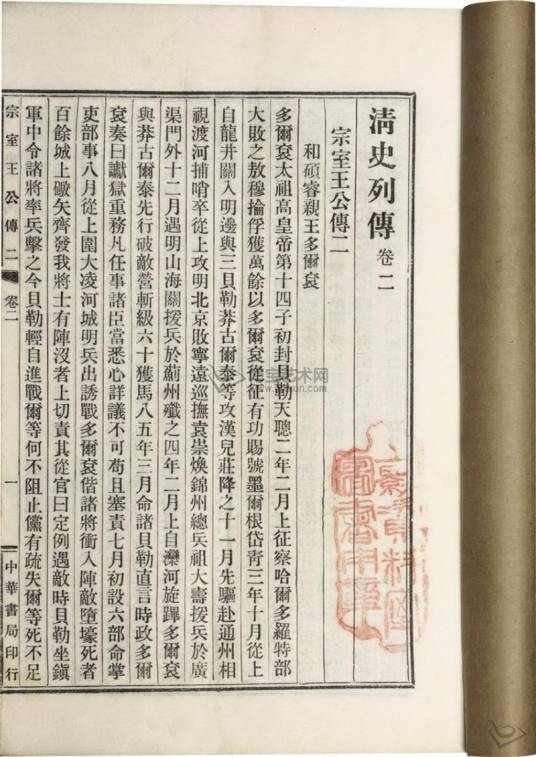 清史列傳卷二
宗室王公傳二
和碩睿親王多爾袞
多爾袞太祖高皇帝第十四子初封貝勒天聰二年二月上征察哈爾多羅特部
大敗之敖穆掄俘獲萬餘以多爾袞從征有功賜號墨爾根岱青三年十月從上
自龍井關入明邊與三貝勒莽古爾泰等攻漢兒莊降之十一月先驅赴通州相
視渡河捕哨卒從上攻明北京敗寧遠巡撫袁崇煥錦州總兵祖大壽援兵於廣
渠門外十二月遇明山海關援兵於薊州殲之四年二月上自灤河旋蹕多爾袞
與莽古爾泰先行破敵營斬級六十獲馬八五年三月命諸貝勒直言時政多爾
袞奏曰讞獄重務凡任事諸臣當悉心詳議不可苟且塞責七月初設六部命掌
吏部事八月從上圍大凌河城明兵出誘戰多爾袞偕諸將衝入陣敵墮壕死者
百餘城上礮矢齊發我將士有陣沒者上切責其從官曰定例遇敵時貝勒坐鎮
軍中令諸將率兵擊之今貝勒輕自進戰爾等何不阻止儻有疏失爾等死不足
宗室王公傳二 卷二 一 中華書局印行